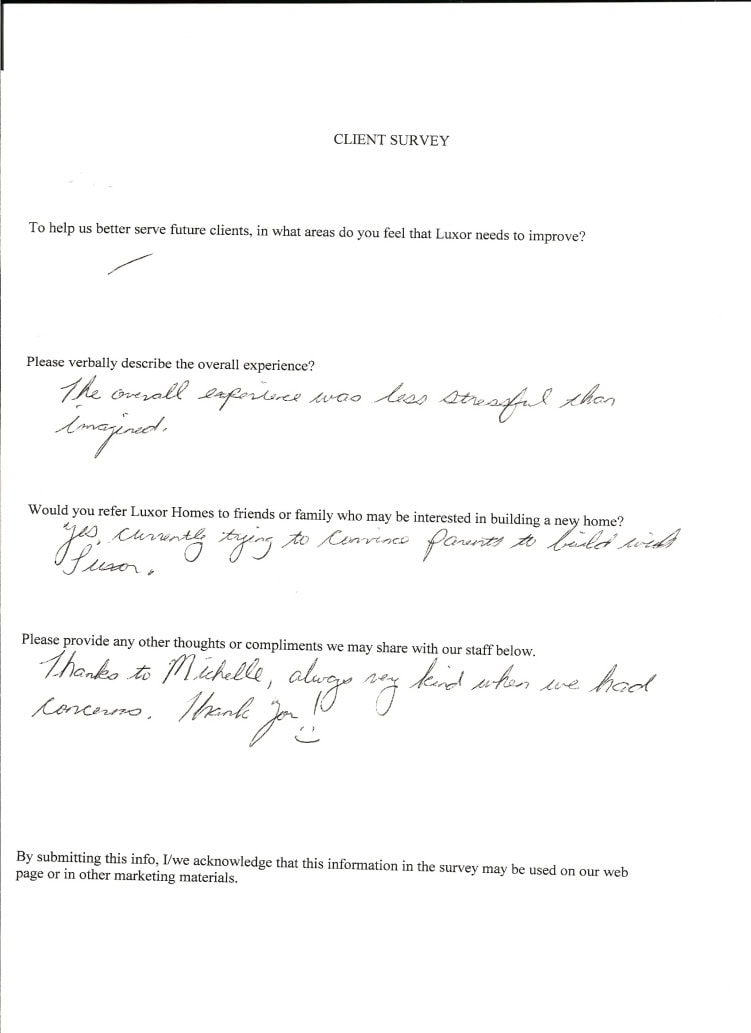 CLIENT SURVEY
To help us better serve future clients, in what areas do you feel that Luxor needs to improve?
Please verbally describe the overall experience?
The overall experience was less stressful than
imagined.
Would you refer Luxor Homes to friends or family who may be interested in building a new home?
Yes, currently trying to convince parents to build with
Luxor.
Please provide any other thoughts or compliments we may share with our staff below.
Thanks to Michelle, always very kind when we had
concerns. Thank you!!
By submitting this info, I/we acknowledge that this information in the survey may be used on our web
page or in other marketing materials.